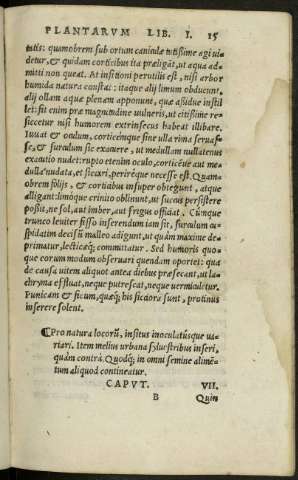 PLANTARVM LIB. I. 15
tntis: quamobrem sub ortum caniculæ tutissime agi ui⸗
detur, & quidam corticibus ita præligãt, ut aqua ad⸗
mitti non queat. At insitioni perutilis est, nisi arbor
humida natura constat: itaque alij limum obducunt,
alij ollam aquæ plenam apponunt, quæ assidue instil
let: sit enim præ magnitudine uulneris, ut citissime re⸗
siccetur nisi humorem extrinsecus habeat illibare.
Iuuat & oculum, corticemque sine ulla rima serua⸗
ße, & surculum sic exauere, ut medullam nullatenus
exautio nudet: rupto etenim oculo, corticéue aut me⸗
dulla nudata, et siccari, perireque necesse est. Quam⸗
obrem folijs, & corticibus insuper obtegunt, atque
alligant: limóque crinito oblinunt, ut succus persistere
poßit, ne sol, aut imber, aut frigus officiat. Cúmque
trunco leuiter fisso inserendum iam sit, surculum cu⸗
spidatim decisũ malleo adigunt, ut quàm maxime de⸗
primatur, lecticæq; committatur. Sed humoris quo⸗
que eorum modum obseruari quendam oportet: qua
de causa uitem aliquot antea diebus præsecant, ut la⸗
chryma effluat, neque putrescat, neque uermiculetur.
Punicam & ficum, quæq; his sicciora sunt, protinus
inserere solent.
¶Pro natura locorũ, insitus inoculatúsque ua⸗
riari. Item melius urbana syluestribus inseri,
quàm contrà. Quodq; in omni semine alimẽ⸗
tum aliquod contineatur.
CAPVT. VII.
B Quin